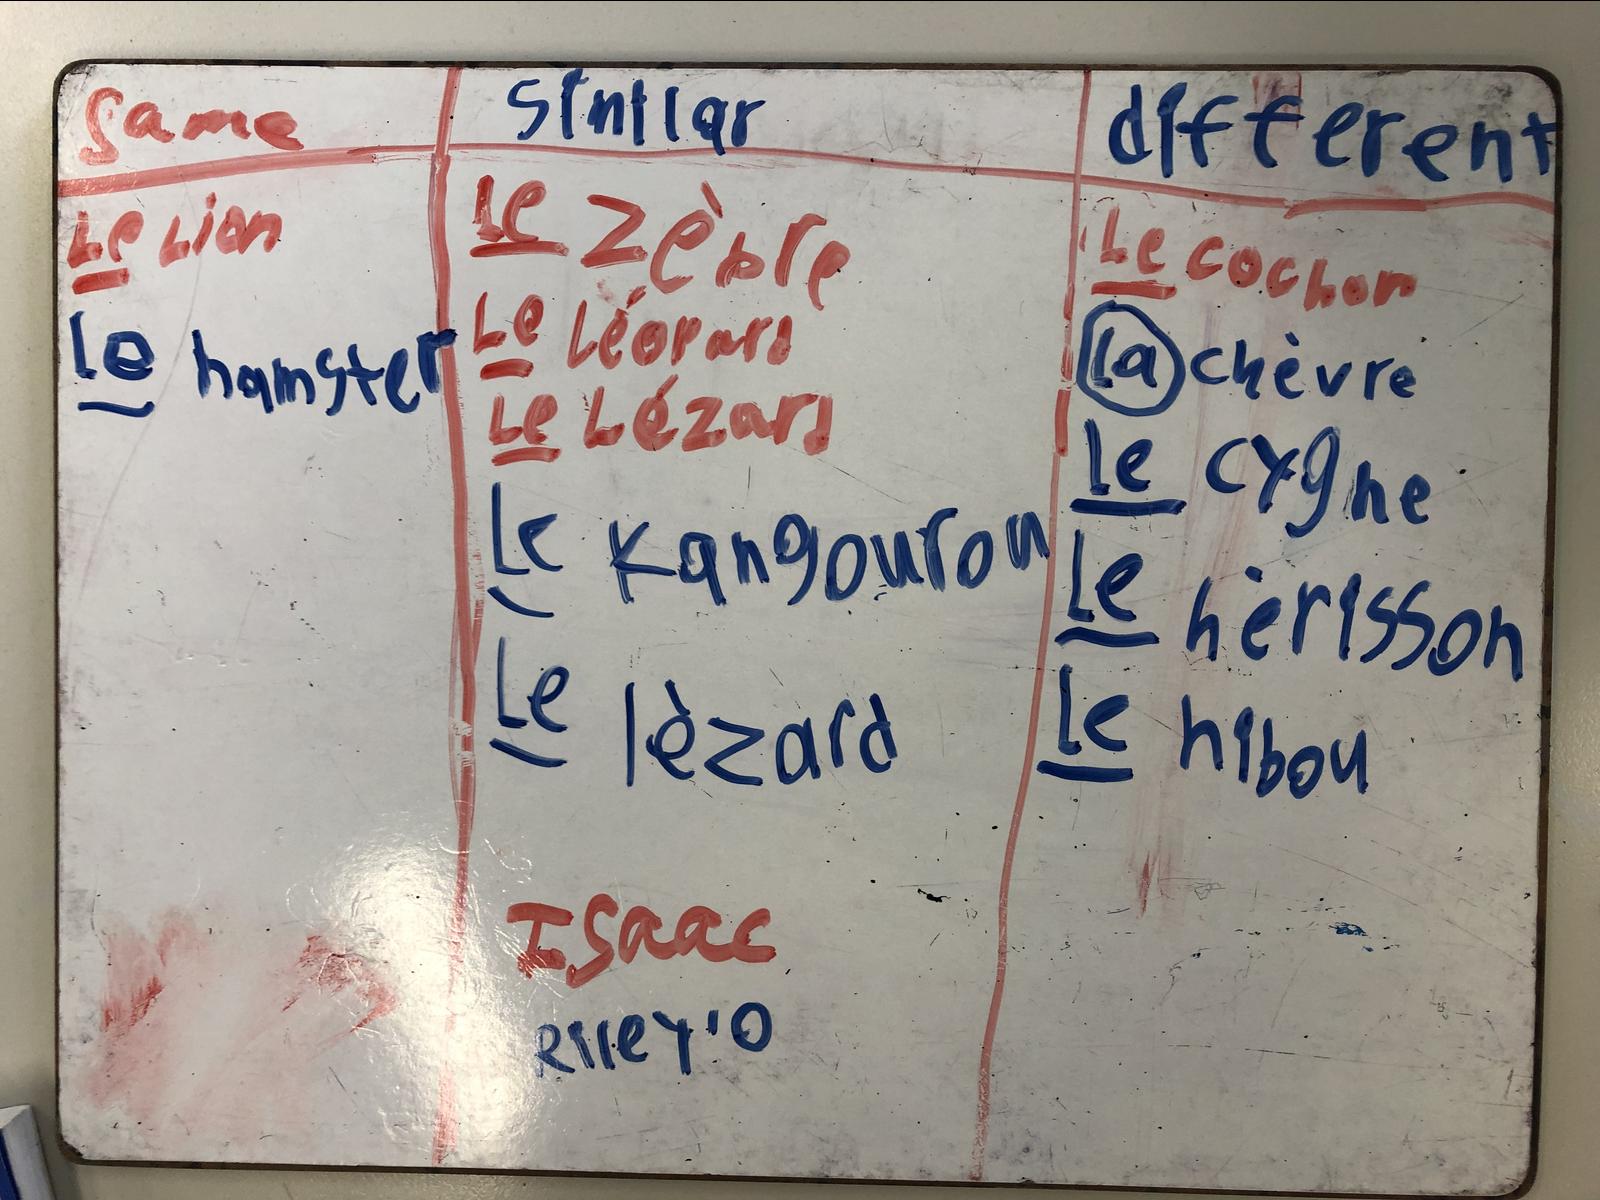 same
Le Lion
le hamster
Similar
Le Zèbre
Le Léopard
Le Lézard
Le Kangourou
Le lèzard
Isaac
Riley'O
different
Le cochon
la chèvre
le cygne
Le hèrisson
le hibou